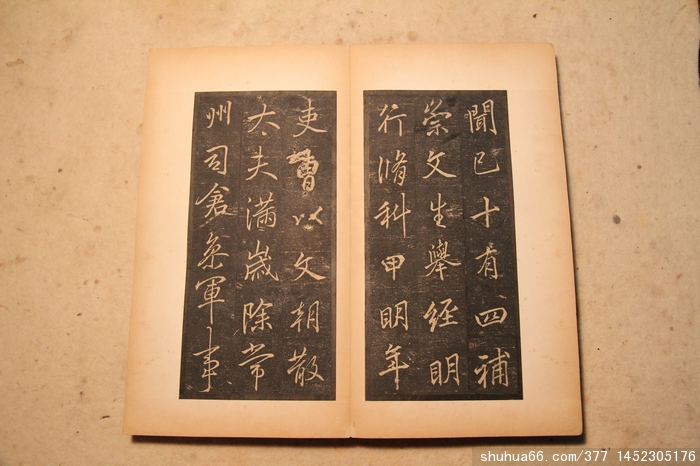 聞已十有四補
崇文生舉經明
行脩科甲明年
吏曹以文朝散
太夫滿歲除常
州司倉叅軍事
shuhua66.com/377 1452305176